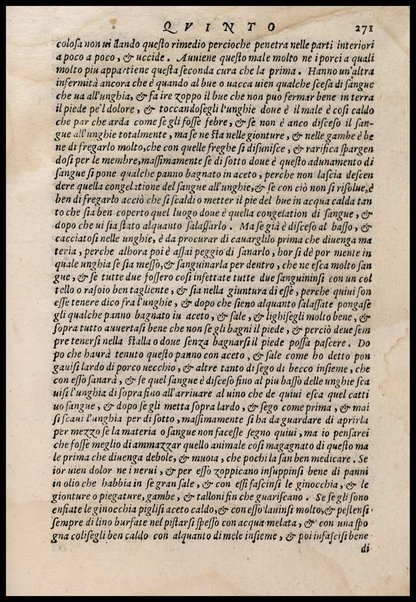 QVINTO 271
colosa non vi dando questo rimedio percioche penetra nelle parti interiori
a poco a poco, & uccide. Auuiene questo male molto ne i porci a quali
molto piu appartiene questa seconda cura che la prima. Hanno un'altra
infermità ancora che è quando al bue o uacca uien qualche scesa di sangue
che ua all'unghia, & fa ire zoppo il bue che non puo fermar bene in terra
il piede pe'l dolore, & toccandosegli l'unghie doue è il male è così caldo
che par che arda come se gli fosse febre, & se non è anco disceso il san-
gue all'unghie totalmente, ma se ne sta nelle gionture, & nelle gambe è be
ne di fregarlo molto, che con quelle freghe si disunisce, & rarifica spargen
dosi per le membre, massimamente se di sotto doue è questo adunamento di
sangue si pone qualche panno bagnato in aceto, perche non lascia descen
dere quella congelatione del sangue all'unghie, & se con ciò non si risolue, è
ben di fregarlo acciò che si scaldi o metter il pie del bue in acqua calda tan
to che sia ben coperto quel luogo doue è quella congelation di sangue, &
dopo che ui sia stato alquanto salassarlo. Ma se già è disceso al basso, &
cacciatosi nelle unghie, è da procurar di cauarglilo prima che diuenga ma
teria, perche alhora poi è assai peggio di sanarlo, hor si dè por mente in
quale unghia se sia messo, & sanguinarla per dentro, che ne esca molto san
gue, & se tutte due fossero così infettate tutte due sanguininsi con un col
tello o rasoio ben tagliente, & sia nella giuntura di esse, perche quiui son
esse tenere dico fra l'unghie, & dopo che sieno alquanto salassate pongase
gli qualche panno bagnato in aceto, & sale, & lighisegli molto bene, &
sopra tutto auuertasi bene che non se gli bagni il piede, & perciò deue sem
pre tenersi nella stalla o doue senza bagnarsi il piede possa pascere. Do
po che haurà tenuto questo panno con aceto, & sale come ho detto pon
gauisi lardo di porco uecchio, & altre tanto di sego di becco insieme, che
con esso sanarà, & se quel sangue è disceso fino al piu basso delle unghie sca
uisi l'unghia di sopra fino all'arriuare al uino che de quiui esca quel catti
uo sangue, & dopo se gli metta sopra lardo, & sego come prima, & mai
si scaui l'unghia per di sotto, massimamente si ha da guardare di aprirla
per mezzo se la materia o sangue non facesse segno quiui, ma io pensarei
che fosse meglio di ammazzar quello animale così magagnato di questo ma
le prima che diuenga debole, & muoia, che pochi la san ben medicare. Se
ior uien dolor ne i nerui, & per esso zoppicano insuppinsi bene di panni
in olio che habbia in se gran sale, & con essi fascinsi le ginocchia, & le
gionture o piegature, gambe, & talloni fin che guariscano. Se se gli sono
enfiate le ginocchia piglisi aceto caldo, & con esso lauinsi molto, & pestensi
sempre di lino burfate nel pistarsi spesso con acqua melata, & con una spo
gna colisegli ben caldo con alquanto di mele insieme, & poi infascisi bene
di